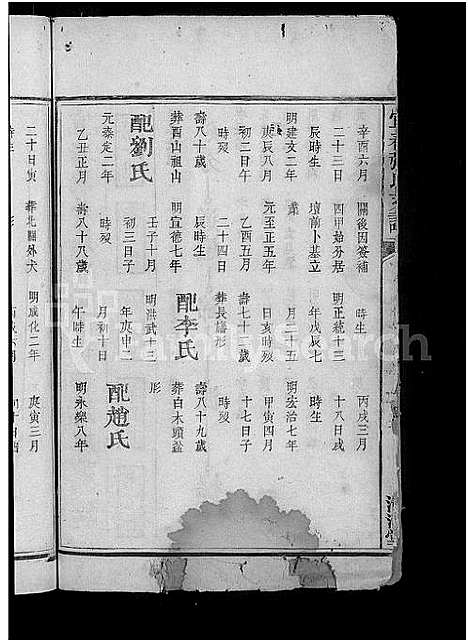 辛酉六月
二十三日
辰時生
明建文二年
庚辰八月
初二日午
時歿
壽八十歲
葬酉山祖山
配劉氏
元泰定二年
乙丑正月
關後因簽補
四甲始分居
墳前卜基立
業
元至正五年
乙酉五月
二十四日
辰時生
明宣德七年
壬子十月
初三日子
時歿
壽八十八歲
時生
明正統十三
年戊辰七
月二十五
日亥時歿
壽七十歲
葬長塘形
配李氏
明洪武十三
年庚申二
月初十日
午時生
丙戌三月
十八日戌
時生
明宏治七年
甲寅四月
十七日子
時歿
壽八十九歲
葬白木頭
形
配趙氏
明永樂八年
庚寅三月
二十日寅
葬北關外犬
形
明成化二年
FamilySearch